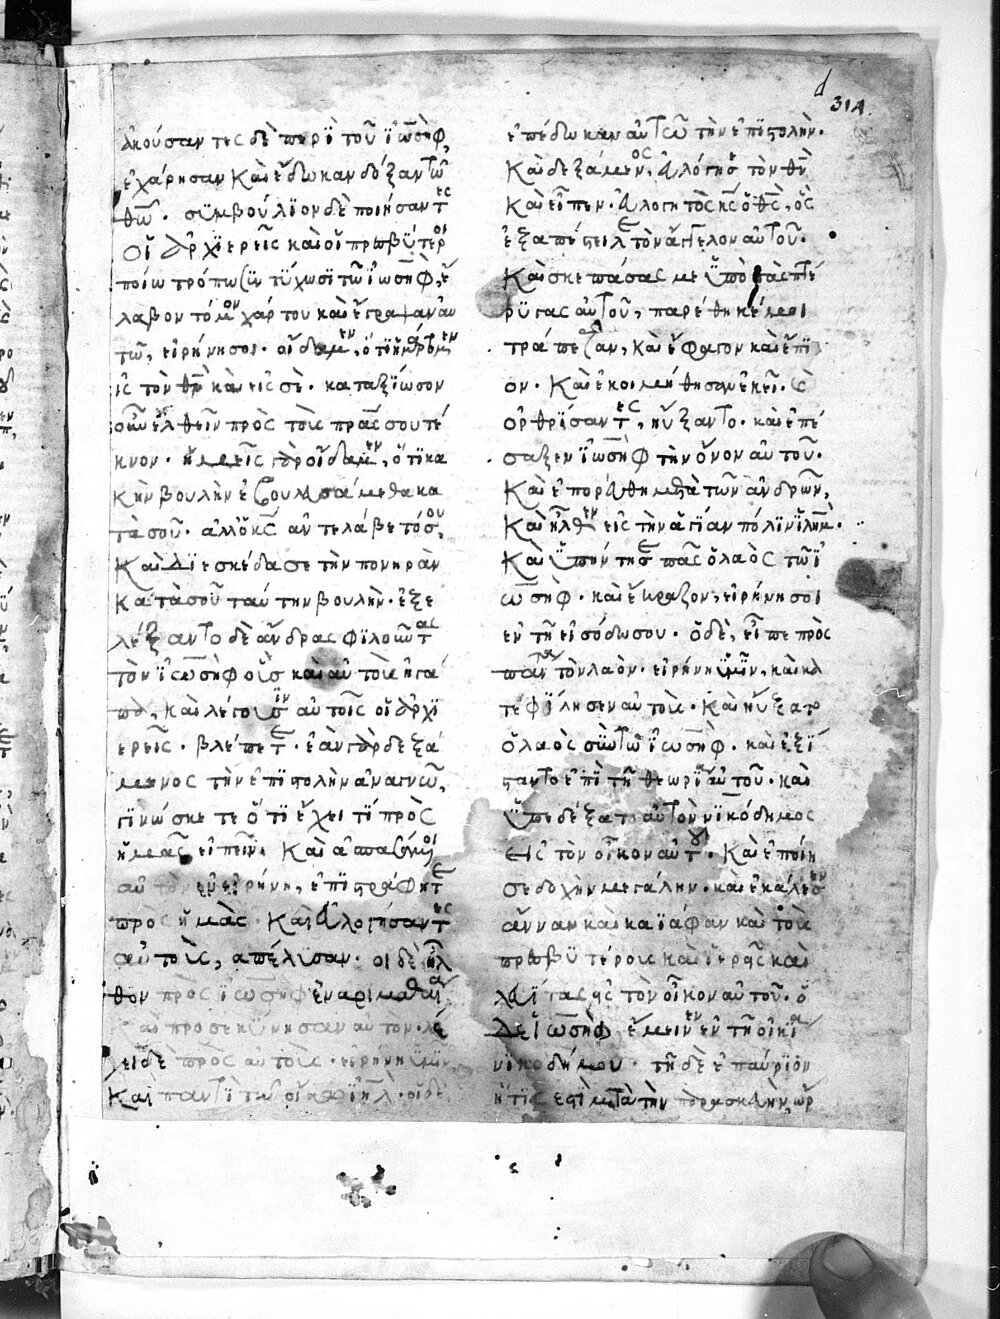 31A
ἀκούσαν τες δὲ περὶ τοῦ ἰωσηφ,
ἐχάρησαν Καὶ ἔδωκαν δόξαν τῶ
θω. συμβούλιον δὲ ποιήσαντες
Οἱ ἀρχιερεῖς καὶ οἱ πρεσβύτεροι
ποίω τρόπω τύχωσι τῶ ἰωσηφ, ἔ
λαβον τόμον χάρτου καὶ ἔγραψαν αυ
τῶ, εἰρήνη σοι. οἴδαμεν, ὅτι ἡμάρτομεν
εἰς τὸν θν καὶ εἰς σὲ. καταξίωσον
οὖν ἐλθεῖν πρὸς τοὺς πρας σου τέ
κνον. ἡμεῖς γὰρ οἴδαμεν, ὅτι κα
κὴν βουλὴν ἐβουλευσάμεθα κα
τὰ σοῦ. ἀλλ ὁ κς ἀντελάβετό σου,
Καὶ διεσκέδασε τὴν πονηρὰν
Κατὰ σοῦ ταύτην βουλὴν. ἐξε
λέξαντο δὲ ἄνδρας φιλοῦντας
τὸν ἰωσηφ οὓς καὶ αὐτοὺς ἠγά
πα, καὶ λέγουσιν αὐτοῖς οἱ ἀρχι
ερεῖς. βλέπετε. ἐὰν γὰρ δεξά
μενος τὴν ἐπιστολὴν ἀναγνῶ,
γινώσκετε ὅτι ἔχει τί πρὸς
ἡμᾶς εἰπεῖν. Καὶ ἀσπαζόμενοι
αὐτὸν ἐν εἰρήνη, ἐπιστράφητε
πρὸς ἡμὰς. Καὶ εὐλογήσαντες
αὐτοὺς, ἀπέλυσαν. οἱ δὲ ἦλ
θον πρὸς ἰωσηφ ἐν αριμαθαία
Καὶ προσεκύνησαν αὐτὸν. λέ
γει δὲ πρὸς αὐτοὺς. εἰρήνη ὑμῖν
Καὶ παντὶ τῶ οἴκω ιηλ. οἱ δὲ
ἐπέδωκαν αὐτῶ τὴν ἐπιστολὴν.
Καὶ δεξάμενος, εὐλόγησε τὸν θν
Καὶ εἶπεν. εὐλογητὸς κς ὁ θς, ὃς
ἐξαπέστειλε τὸν ἄγγελον αὐτοῦ.
Καὶ σκεπάσας με ὑπὸ τὰς πτέ
ρυγας αὐτοῦ, παρέθηκέ μοι
τράπεζαν, καὶ ἔφαγον καὶ ἔπι
ον. Καὶ ἐκοιμήθησαν ἐκεῖ. Καὶ
ὀρθρίσαντες, ηὔξαντο. καὶ ἐπέ
σαξεν ἰωσηφ τὴν ὄνον αὐτοῦ.
Καὶ ἐπορεύθη μετὰ τῶν ἀνδρῶν,
Καὶ ἦλθεν εἰς τὴν ἁγίαν πόλιν ιλημ.
Καὶ ὑπήντησε πᾶς ὁ λαὸς τῶ ἰ
ωσηφ. καὶ ἔκραζον, εἰρήνη σοι
ἐν τῆ εἰσόδω σου. ὁ δὲ, εἶπε πρὸς
πάντα τὸν λαὸν. εἰρήνη ὑμῖν, καὶ κα
τεφίλησεν αὐτοὺς. Καὶ ηὔξατο
ὁ λαὸς σὺν τῶ ἰωσηφ. καὶ ἐξί
σταντο ἐπὶ τῆ θεωρία αὐτοῦ. καὶ
ὑπεδέξατο αὐτὸν νικόδημος
εἰς τὸν οἶκον αὐτοῦ. Καὶ ἐποίη
σε δοχὴν μεγάλην. καὶ ἐκάλεσεν
ἄνναν καὶ καϊάφαν καὶ τοὺς
πρεσβυτέρους καὶ ἱερεῖς καὶ
λευίτας εἰς τὸν οἶκον αὐτοῦ. ὁ
δὲ ἰωσηφ, ἔμεινεν ἐν τῆ οἰκία
νικοδήμου. τῆ δὲ ἐπαύριον
ἥτις ἐστὶ μετὰ τὴν παρασκευὴν, ὤρ